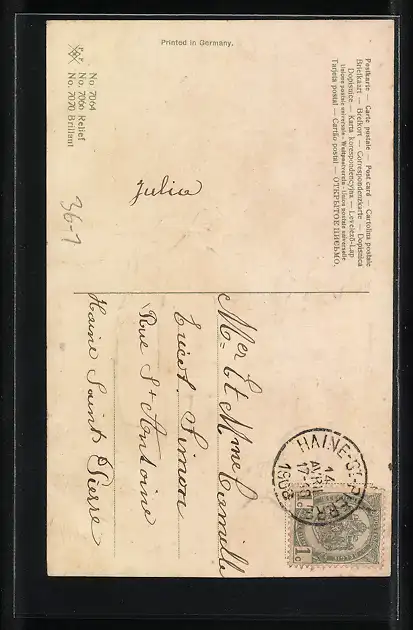 Postkarte — Carte postale — Post card — Cartolina postale
Briefkaart — Brefkort — Correspondenzkarte — Dopisnica
Dopisnice — Karta korespondencyjna — Levelező-Lap
Union postale universelle - Weltpostverein - Union postale universelle
Tarjeta postal — Cartão postal — ОТКРЫТОЕ ПИСЬМО.
Printed in Germany.
No. 7064
No. 7066 Relief
No. 7070 Brillant
Julia
36-1
HAINE-ST-PIERRE
14
AVRIL
17-
1908
1c
Mer Et Mme Camille
Simon
Rue St Antoine
Haine Saint Pierre